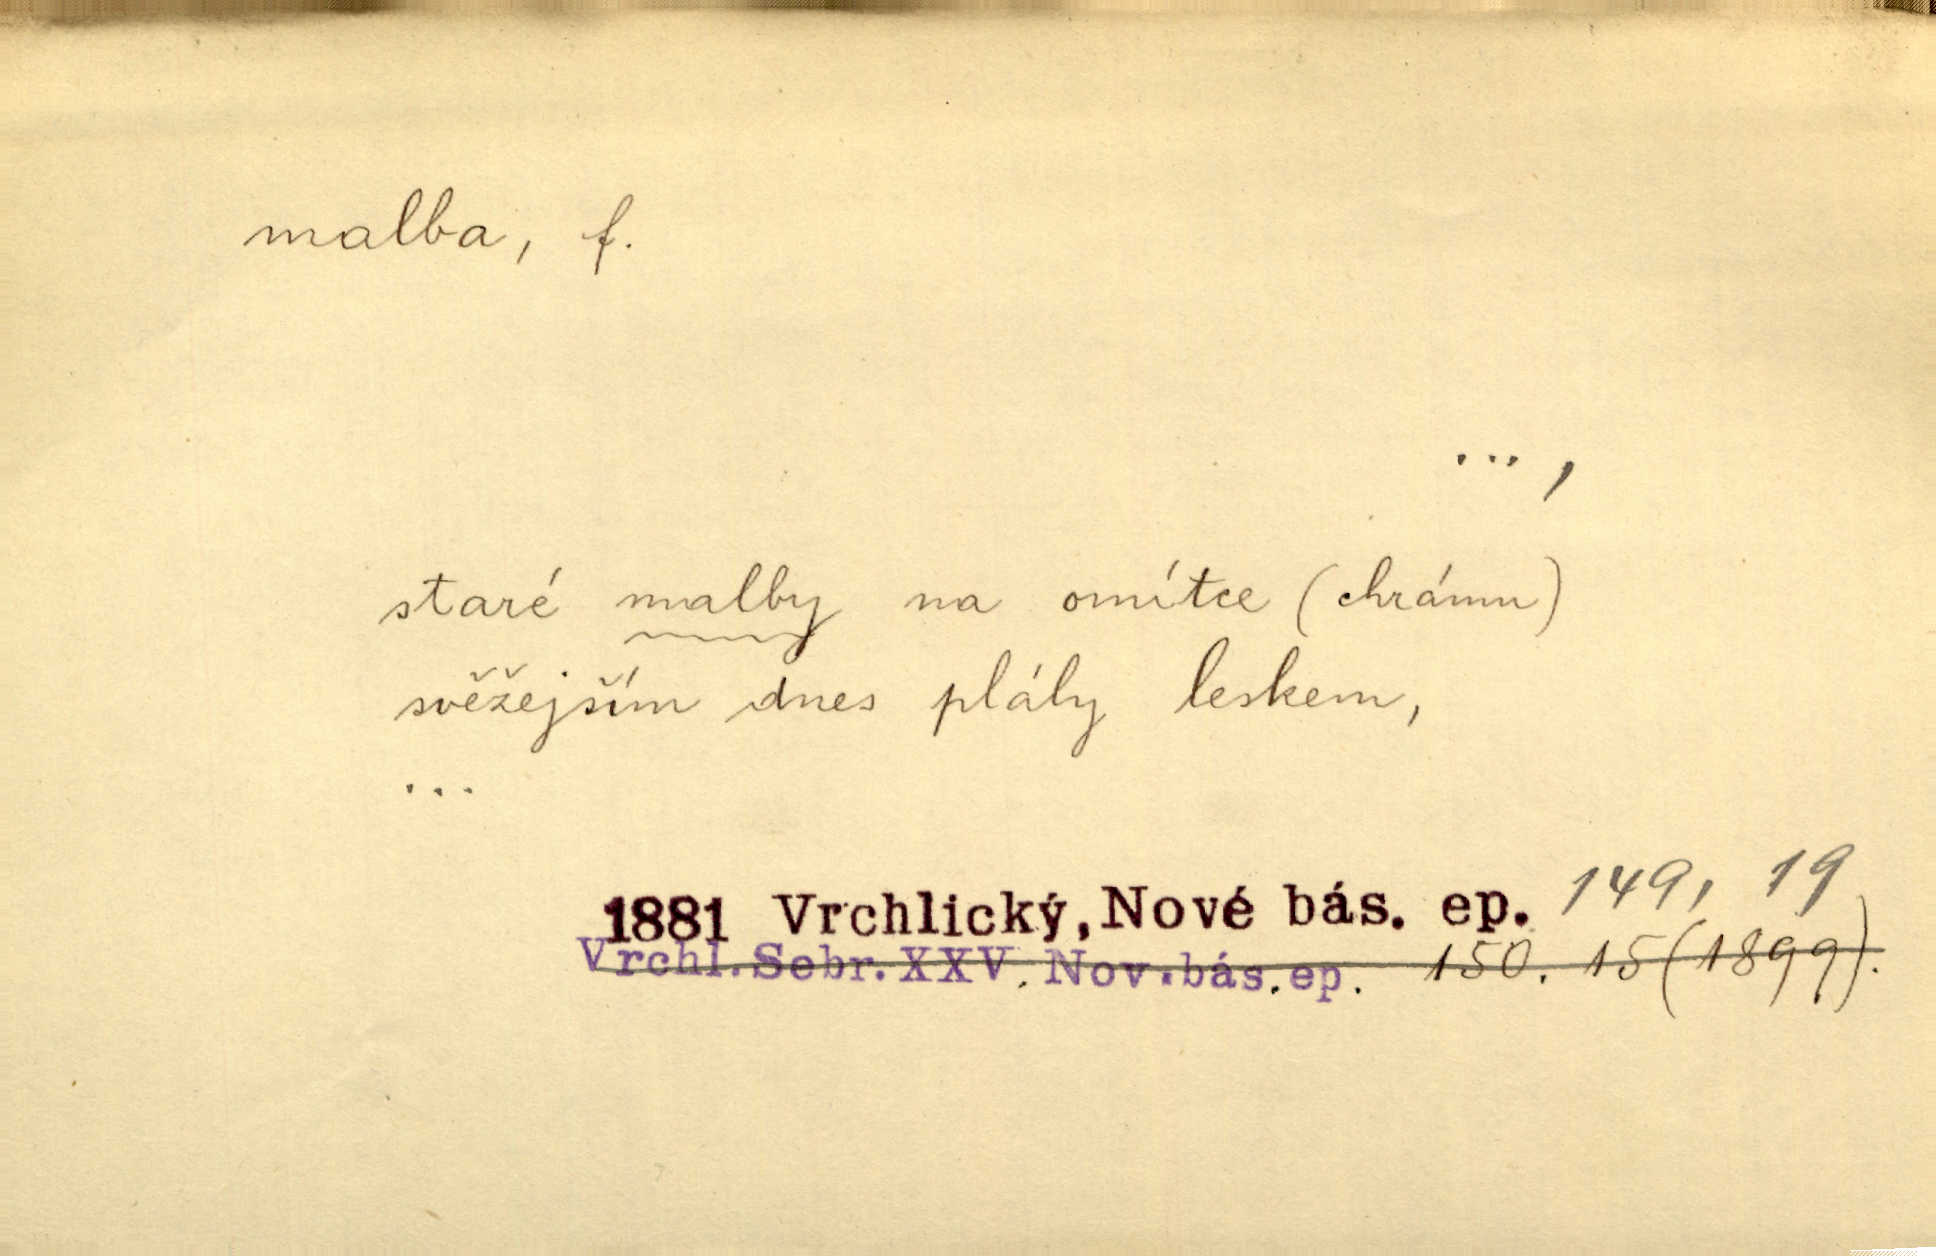 malba, f.
... ,
staré malby na omítce (chrámu)
svěžejším dnes plály leskem,
...
1881 Vrchlický, Nové bás. ep. 149, 19
Vrchl. Sebr. XXV. Nov. bás. ep. 150. 15 (1899).